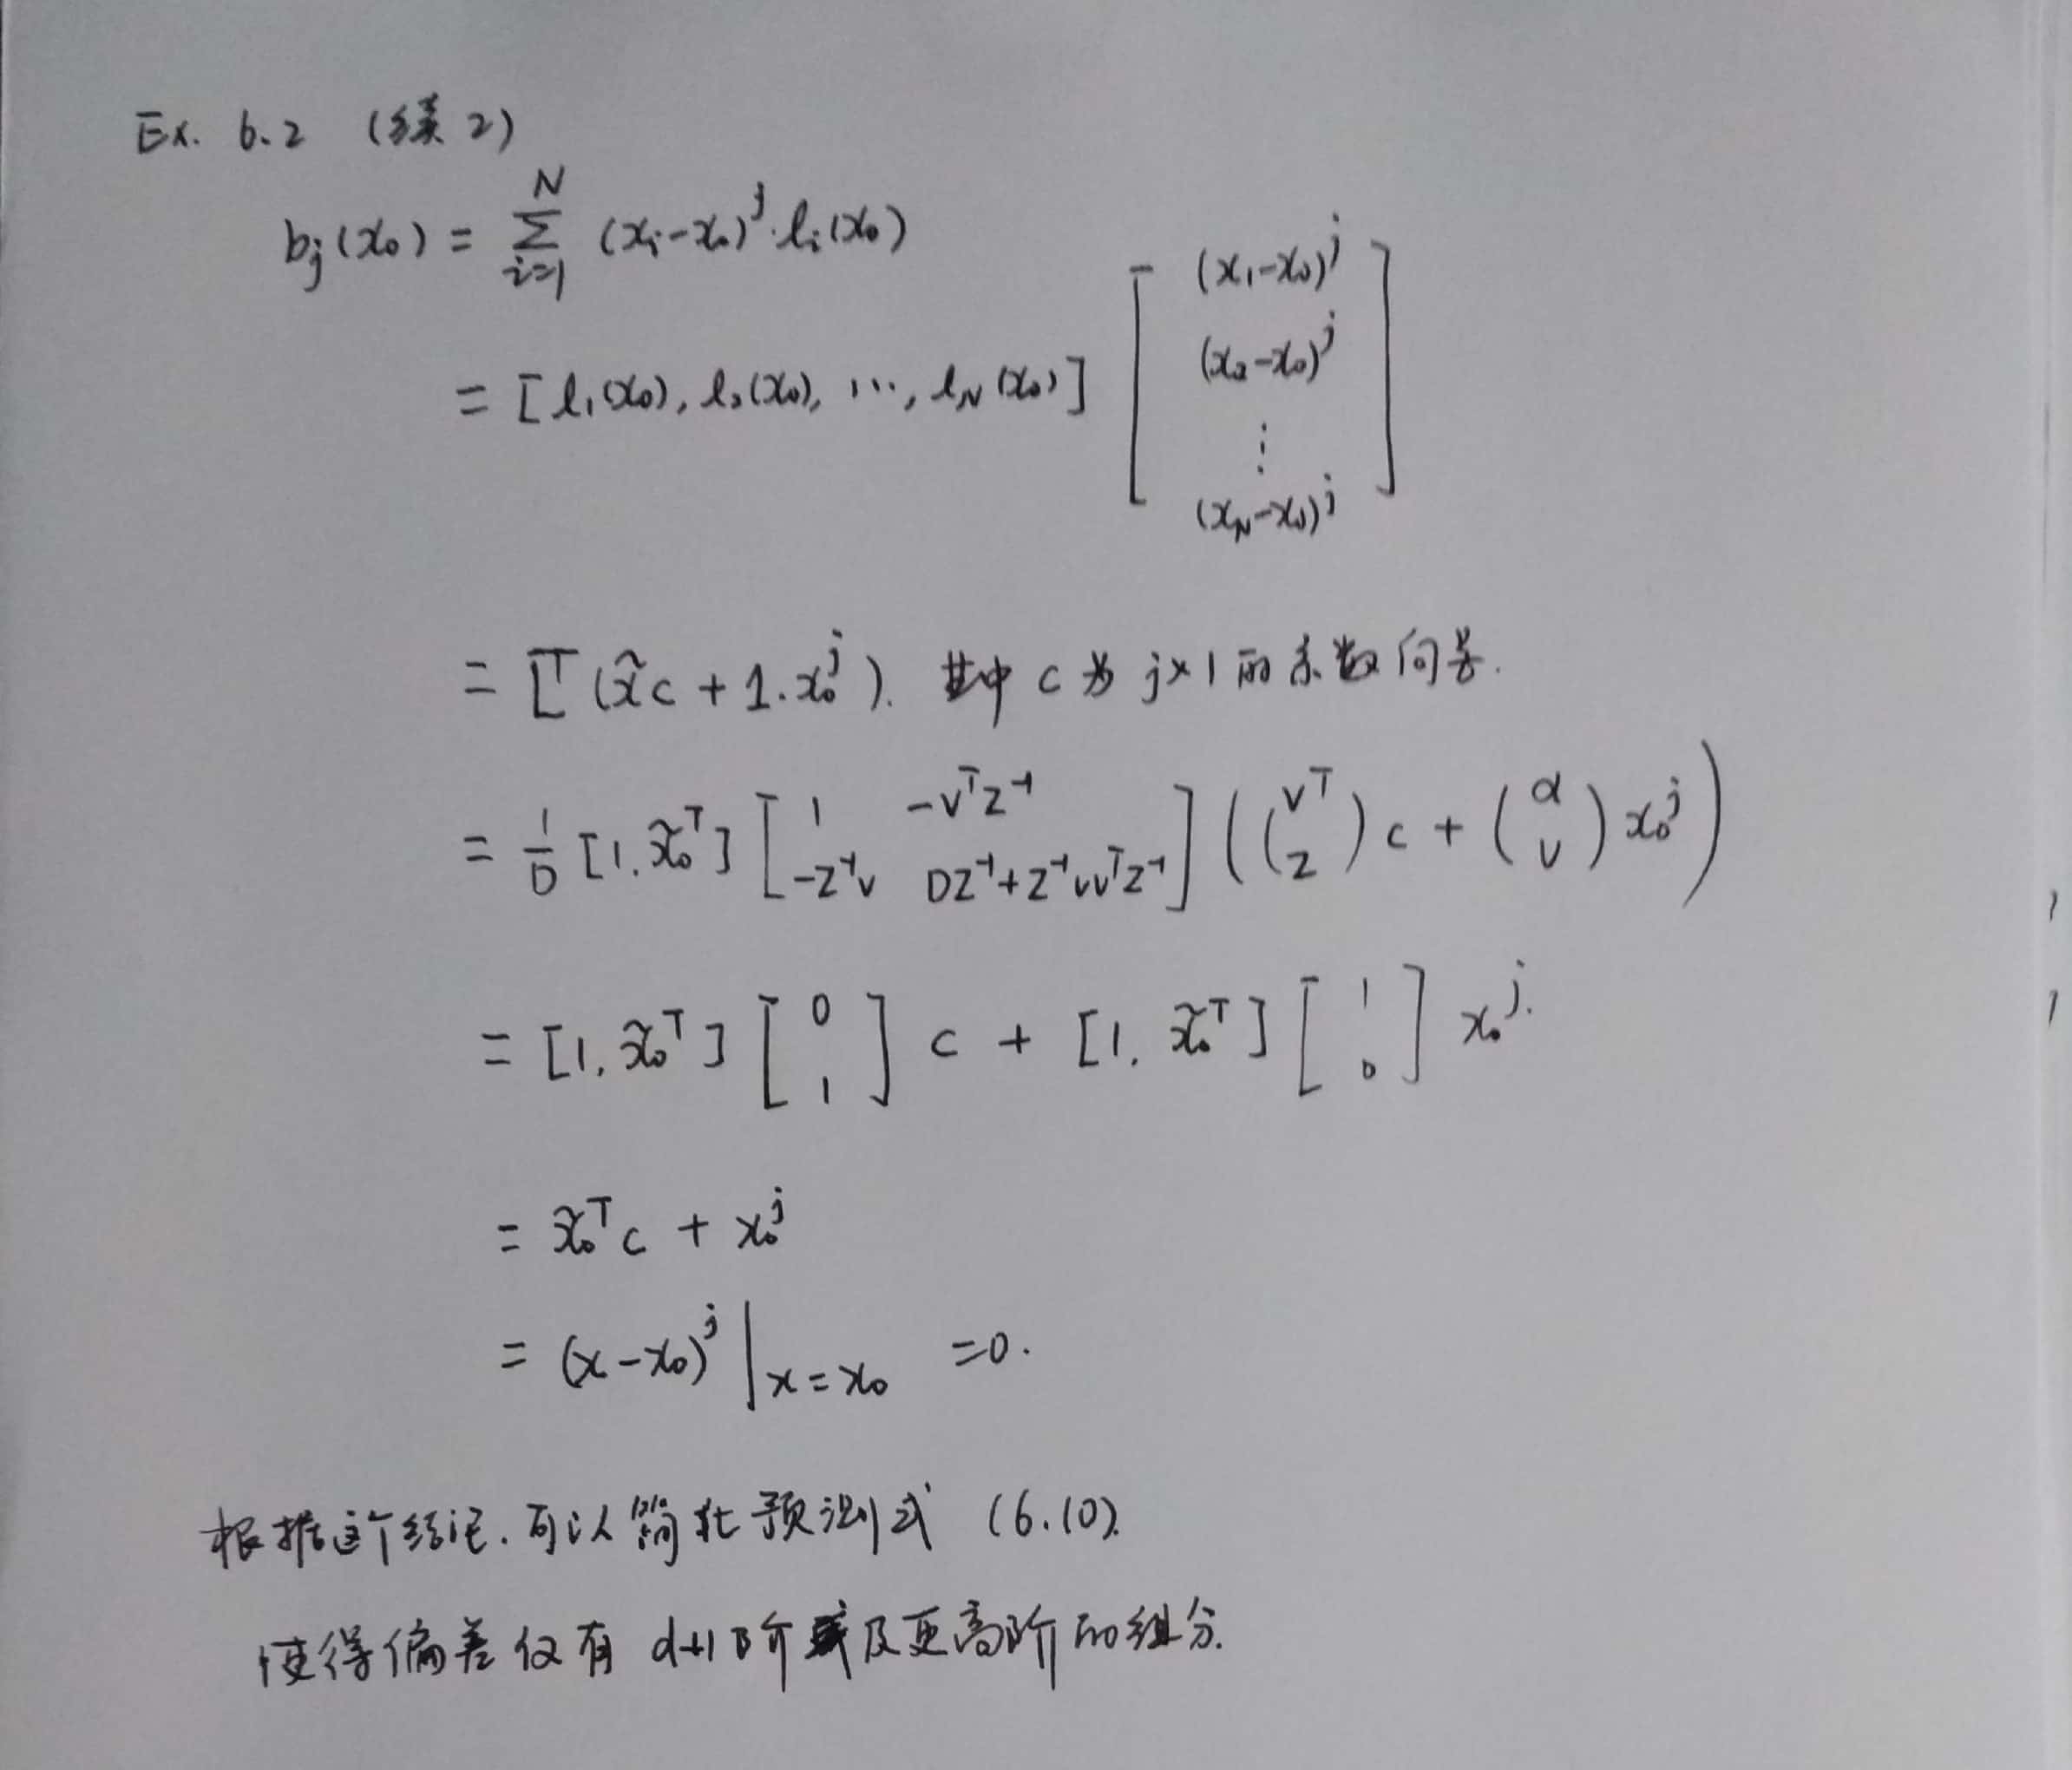 Ex. 6.2 (续2)
b_j(x_0) = \sum_{i=1}^{N} (x_i-x_0)^j · l_i(x_0)
= [l_1(x_0), l_2(x_0), ···, l_N(x_0)] [ (x_1-x_0)^j (x_2-x_0)^j ⋮ (x_N-x_0)^j ]
= L^T (x̃c + 1·x_0^j). 其中 c 为 j×1 的系数向量.
= 1/D [1, x̃_0^T] [ 1 -v^T z^{-1} ; -z^{-1}v Dz^{-1}+z^{-1}vv^Tz^{-1} ] ( (v^T ; z) c + (α ; v) x_0^j )
= [1, x̃_0^T] [ 0 ; 1 ] c + [1, x̃_0^T] [ 1 ; 0 ] x_0^j.
= x̃_0^T c + x_0^j
= (x-x_0)^j |_{x=x_0} =0.
根据这个结论. 可以简化预测式 (6.10).
使得偏差仅有 d+1阶及更高阶的组分.